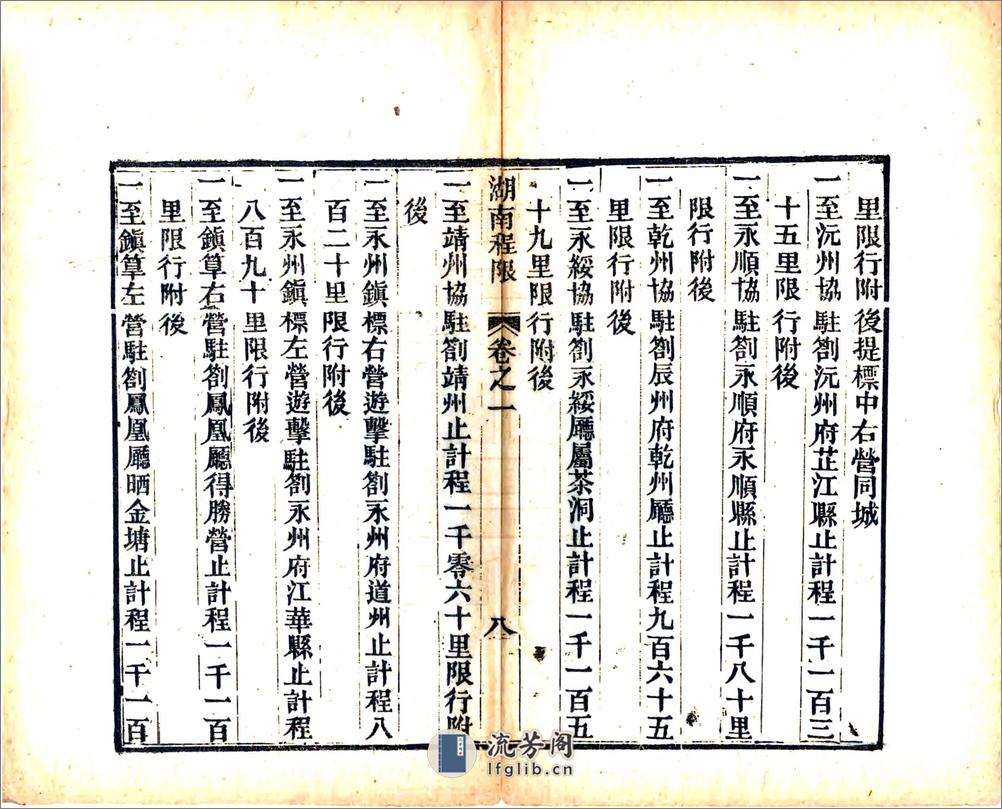 里限行附後提標中右營同城
一至沅州協駐劄沅州府芷江縣止計程一千一百三
十五里限行附後
一至永順協駐劄永順府永順縣止計程一千八十里
限行附後
一至乾州協駐劄辰州府乾州廳止計程九百六十五
里限行附後
一至永綏協駐劄永綏廳屬茶洞止計程一千一百五
十九里限行附後
湖南程限 卷之一 八
一至靖州協駐劄靖州止計程一千零六十里限行附
後
一至永州鎮標右營遊擊駐劄永州府道州止計程八
百二十里限行附後
一至永州鎮標左營遊擊駐劄永州府江華縣止計程
八百九十里限行附後
一至鎮筸右營駐劄鳳凰廳得勝營止計程一千一百
里限行附後
一至鎮筸左營駐劄鳳凰廳晒金塘止計程一千一百
流芳阁
lfglib.cn